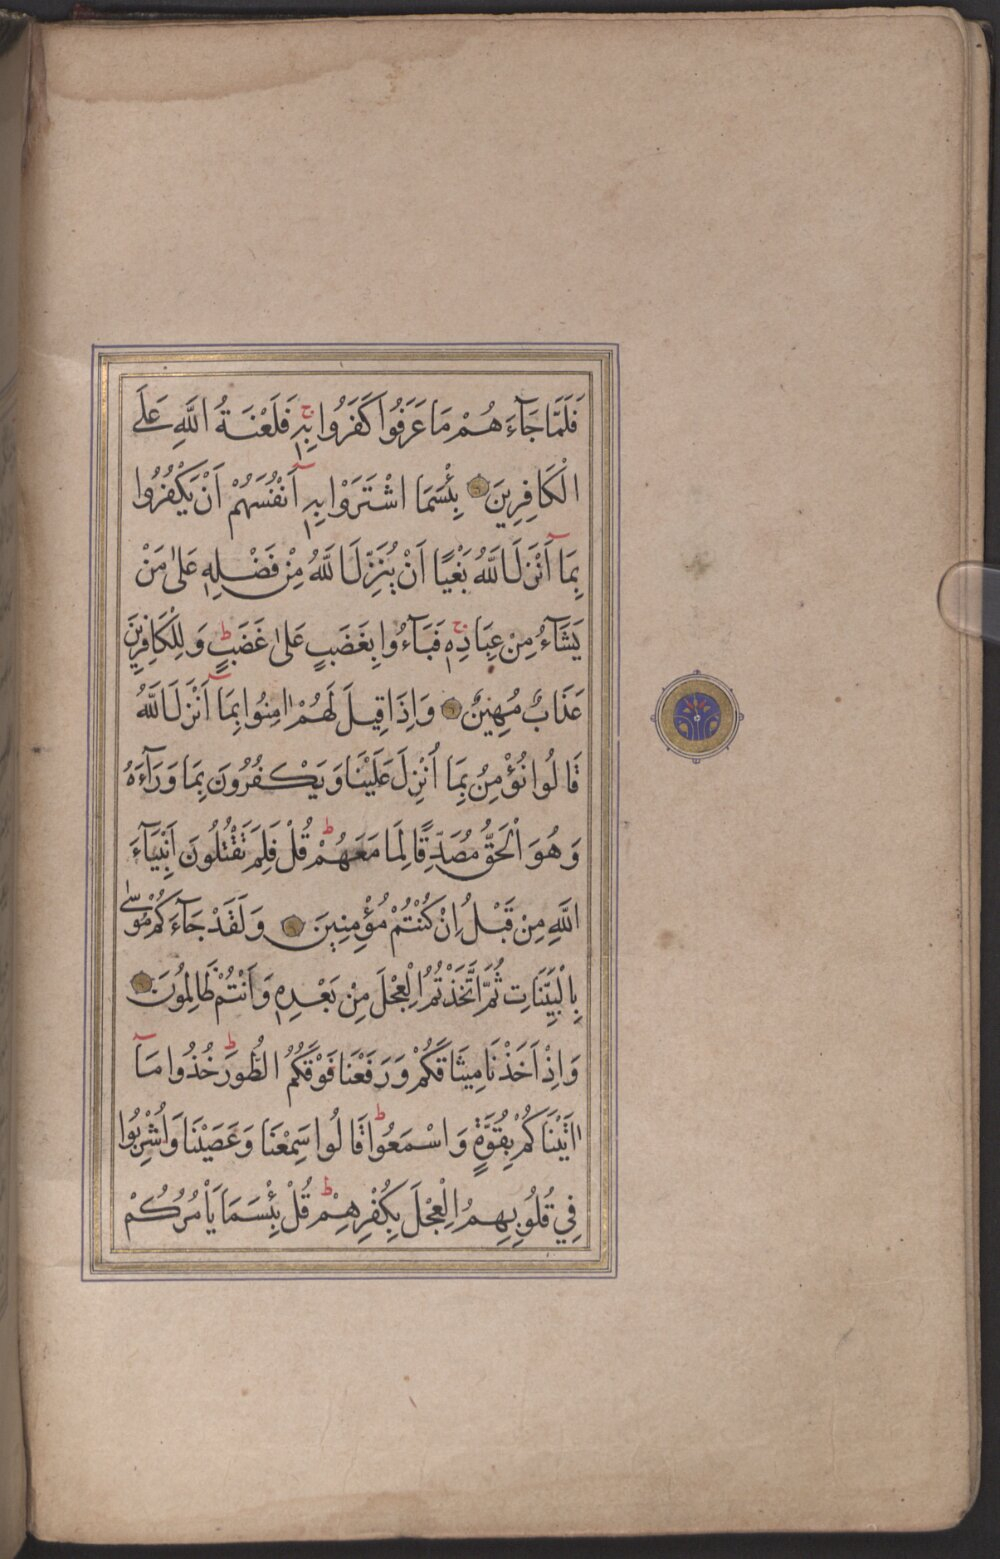 فَلَمَّا جَآءَ هُمْ مَا عَرَفُوا كَفَرُوا بِهٖ ۚ فَلَعْنَةُ اللّٰهِ عَلَى
الْكَافِرِينَ ۝ بِئْسَمَا اشْتَرَوْا بِهٖٓ اَنْفُسَهُمْ اَنْ يَكْفُرُوا
بِمَٓا اَنْزَلَ اللّٰهُ بَغْيًا اَنْ يُنَزِّلَ اللّٰهُ مِنْ فَضْلِهٖ عَلٰى مَنْ
يَشَٓاءُ مِنْ عِبَادِهٖ ۚ فَبَٓاءُوا بِغَضَبٍ عَلٰى غَضَبٍ ؕ وَلِلْكَافِرِينَ
عَذَابٌ مُهِينٌ ۝ وَاِذَا قِيلَ لَهُمْ اٰمِنُوا بِمَٓا اَنْزَلَ اللّٰهُ
قَالُوا نُؤْمِنُ بِمَا اُنْزِلَ عَلَيْنَا وَيَكْفُرُونَ بِمَا وَرَٓاءَهُ
وَهُوَ الْحَقُّ مُصَدِّقًا لِمَا مَعَهُمْ ؕ قُلْ فَلِمَ تَقْتُلُونَ اَنْبِيَٓاءَ
اللّٰهِ مِنْ قَبْلُ اِنْ كُنْتُمْ مُؤْمِنِينَ ۝ وَلَقَدْ جَٓاءَكُمْ مُوسٰى
بِالْبَيِّنَاتِ ثُمَّ اتَّخَذْتُمُ الْعِجْلَ مِنْ بَعْدِهٖ وَاَنْتُمْ ظَالِمُونَ ۝
وَاِذْ اَخَذْنَا مِيثَاقَكُمْ وَرَفَعْنَا فَوْقَكُمُ الطُّورَ ؕ خُذُوا مَٓا
اٰتَيْنَاكُمْ بِقُوَّةٍ وَاسْمَعُوا ؕ قَالُوا سَمِعْنَا وَعَصَيْنَا وَاُشْرِبُوا
فِي قُلُوبِهِمُ الْعِجْلَ بِكُفْرِهِمْ ؕ قُلْ بِئْسَمَا يَاْمُرُكُمْ